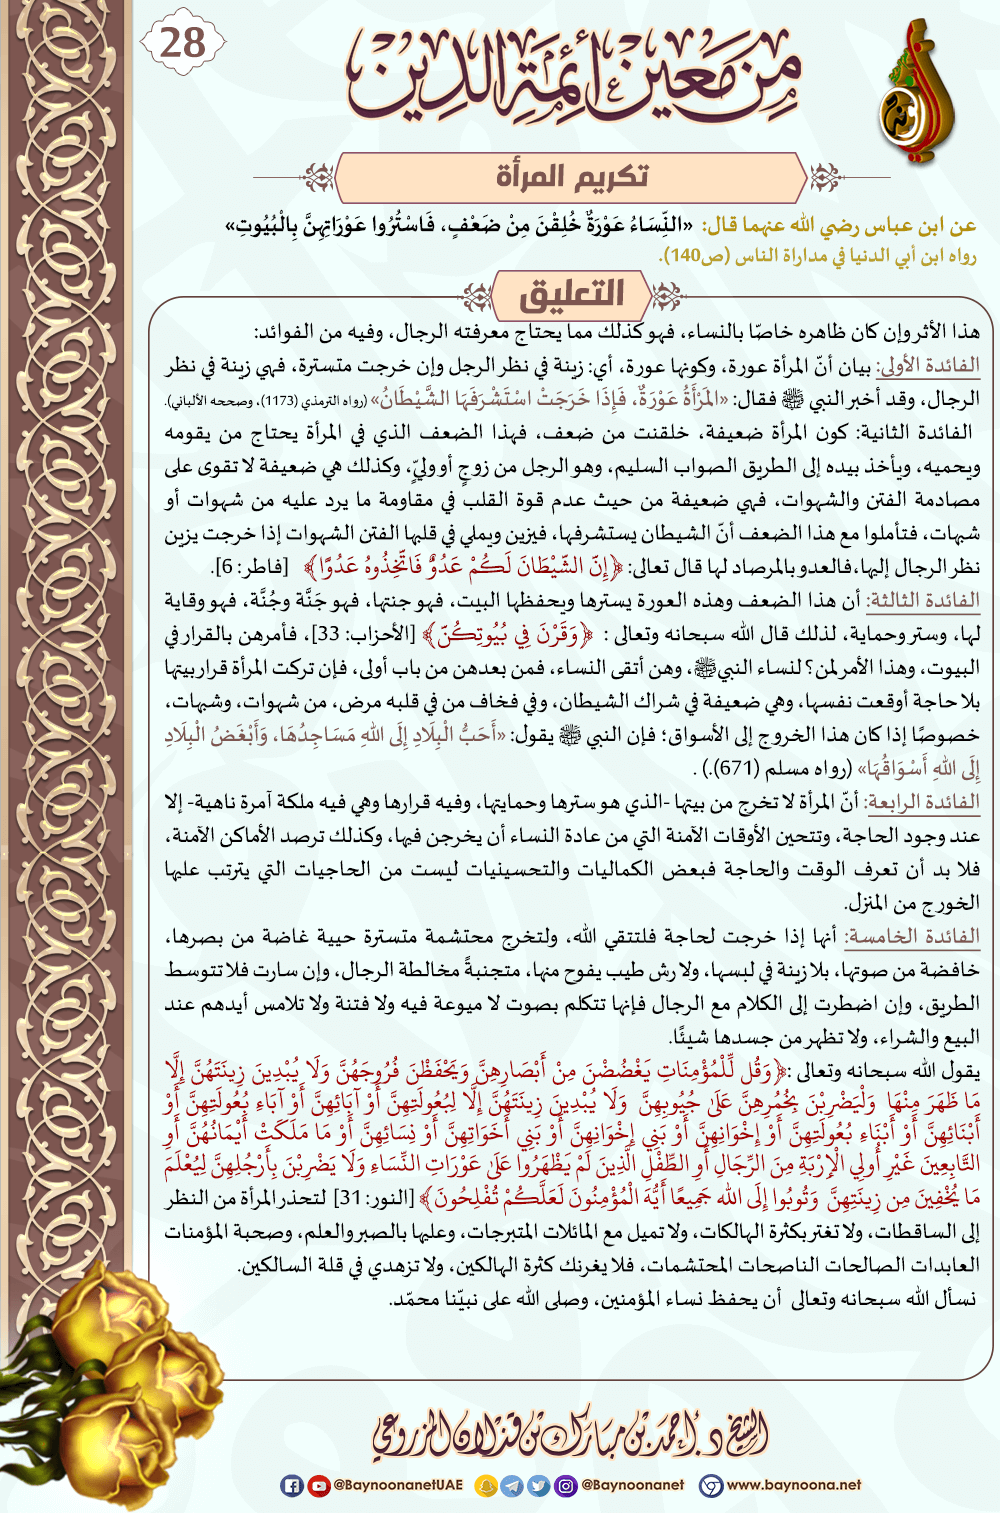 28
من معين أئمة الدين
تكريم المرأة
عن ابن عباس رضي الله عنهما قال: «النِّسَاءُ عَوْرَةٌ خُلِقْنَ مِنْ ضَعْفٍ، فَاسْتُرُوا عَوْرَاتِهِنَّ بِالْبُيُوتِ»
رواه ابن أبي الدنيا في مداراة الناس (ص140).
التعليق
هذا الأثر وإن كان ظاهره خاصًا بالنساء، فهو كذلك مما يحتاج معرفته الرجال، وفيه من الفوائد:
الفائدة الأولى: بيان أنّ المرأة عورة، وكونها عورة، أي: زينة في نظر الرجل وإن خرجت متسترة، فهي زينة في نظر
الرجال، وقد أخبر النبي ﷺ فقال: «المَرْأَةُ عَوْرَةٌ، فَإِذَا خَرَجَتْ اسْتَشْرَفَهَا الشَّيْطَانُ» (رواه الترمذي (1173)، وصححه الألباني).
الفائدة الثانية: كون المرأة ضعيفة، خلقنت من ضعف، فهذا الضعف الذي في المرأة يحتاج من يقومه
ويحميه، ويأخذ بيده إلى الطريق الصواب السليم، وهو الرجل من زوجٍ أو وليٍّ، وكذلك هي ضعيفة لا تقوى على
مصادمة الفتن والشهوات، فهي ضعيفة من حيث عدم قوة القلب في مقاومة ما يرد عليه من شهوات أو
شبهات، فتأملوا مع هذا الضعف أنّ الشيطان يستشرفها، فيزين ويملي في قلبها الفتن الشهوات إذا خرجت يزين
نظر الرجال إليها، فالعدو بالمرصاد لها قال تعالى: ﴿إِنّ الشّيْطَانَ لَكُمْ عَدُوٌّ فَاتّخِذُوهُ عَدُوًا﴾ [فاطر: 6].
الفائدة الثالثة: أن هذا الضعف وهذه العورة يسترها ويحفظها البيت، فهو جنتها، فهو جَنَّة وجُنَّة، فهو وقاية
لها، وستر وحماية، لذلك قال الله سبحانه وتعالى : ﴿وَقَرْنَ فِي بُيُوتِكُنّ﴾ [الأحزاب: 33]، فأمرهن بالقرار في
البيوت، وهذا الأمر لمن؟ لنساء النبي ﷺ، وهن أتقى النساء، فمن بعدهن من باب أولى، فإن تركت المرأة قرار بيتها
بلا حاجة أوقعت نفسها، وهي ضعيفة في شراك الشيطان، وفي فخاف من في قلبه مرض، من شهوات، وشبهات،
خصوصًا إذا كان هذا الخروج إلى الأسواق؛ فإن النبي ﷺ يقول: «أَحَبُّ الْبِلَادِ إِلَى اللهِ مَسَاجِدُهَا، وَأَبْغَضُ الْبِلَادِ
إِلَى اللهِ أَسْوَاقُهَا» (رواه مسلم (671).) .
الفائدة الرابعة: أنّ المرأة لا تخرج من بيتها -الذي هو سترها وحمايتها، وفيه قرارها وهي فيه ملكة آمرة ناهية- إلا
عند وجود الحاجة، وتتحين الأوقات الآمنة التي من عادة النساء أن يخرجن فيها، وكذلك ترصد الأماكن الآمنة،
فلا بد أن تعرف الوقت والحاجة فبعض الكماليات والتحسينيات ليست من الحاجيات التي يترتب عليها
الخورج من المنزل.
الفائدة الخامسة: أنها إذا خرجت لحاجة فلتتقي الله، ولتخرج محتشمة متسترة حيية غاضة من بصرها،
خافضة من صوتها، بلا زينة في لبسها، ولا رش طيب يفوح منها، متجنبةً مخالطة الرجال، وإن سارت فلا تتوسط
الطريق، وإن اضطرت إلى الكلام مع الرجال فإنها تتكلم بصوت لا ميوعة فيه ولا فتنة ولا تلامس أيدهم عند
البيع والشراء، ولا تظهر من جسدها شيئًا.
يقول الله سبحانه وتعالى :﴿وَقُل لِّلْمُؤْمِنَاتِ يَغْضُضْنَ مِنْ أَبْصَارِهِنَّ وَيَحْفَظْنَ فُرُوجَهُنَّ وَلَا يُبْدِينَ زِينَتَهُنَّ إِلَّا
مَا ظَهَرَ مِنْهَا وَلْيَضْرِبْنَ بِخُمُرِهِنَّ عَلَىٰ جُيُوبِهِنَّ وَلَا يُبْدِينَ زِينَتَهُنَّ إِلَّا لِبُعُولَتِهِنَّ أَوْ آبَائِهِنَّ أَوْ آبَاءِ بُعُولَتِهِنَّ أَوْ
أَبْنَائِهِنَّ أَوْ أَبْنَاءِ بُعُولَتِهِنَّ أَوْ إِخْوَانِهِنَّ أَوْ بَنِي إِخْوَانِهِنَّ أَوْ بَنِي أَخَوَاتِهِنَّ أَوْ نِسَائِهِنَّ أَوْ مَا مَلَكَتْ أَيْمَانُهُنَّ أَوِ
التَّابِعِينَ غَيْرِ أُولِي الْإِرْبَةِ مِنَ الرِّجَالِ أَوِ الطِّفْلِ الَّذِينَ لَمْ يَظْهَرُوا عَلَىٰ عَوْرَاتِ النِّسَاءِ وَلَا يَضْرِبْنَ بِأَرْجُلِهِنَّ لِيُعْلَمَ
مَا يُخْفِينَ مِن زِينَتِهِنَّ وَتُوبُوا إِلَى الله جَمِيعًا أَيُّهَ الْمُؤْمِنُونَ لَعَلَّكُمْ تُفْلِحُونَ﴾ [النور: 31] لتحذر المرأة من النظر
إلى الساقطات، ولا تغتر بكثرة الهالكات، ولا تميل مع المائلات المتبرجات، وعليها بالصبر والعلم، وصحبة المؤمنات
العابدات الصالحات الناصحات المحتشمات، فلا يغرنك كثرة الهالكين، ولا تزهدي في قلة السالكين.
نسأل الله سبحانه وتعالى أن يحفظ نساء المؤمنين، وصلى الله على نبيّنا محمّد.
الشيخ د. أحمد بن مبارك بن قذلان المزروعي
@BaynoonanetUAE @Baynoonanet www.baynoona.net